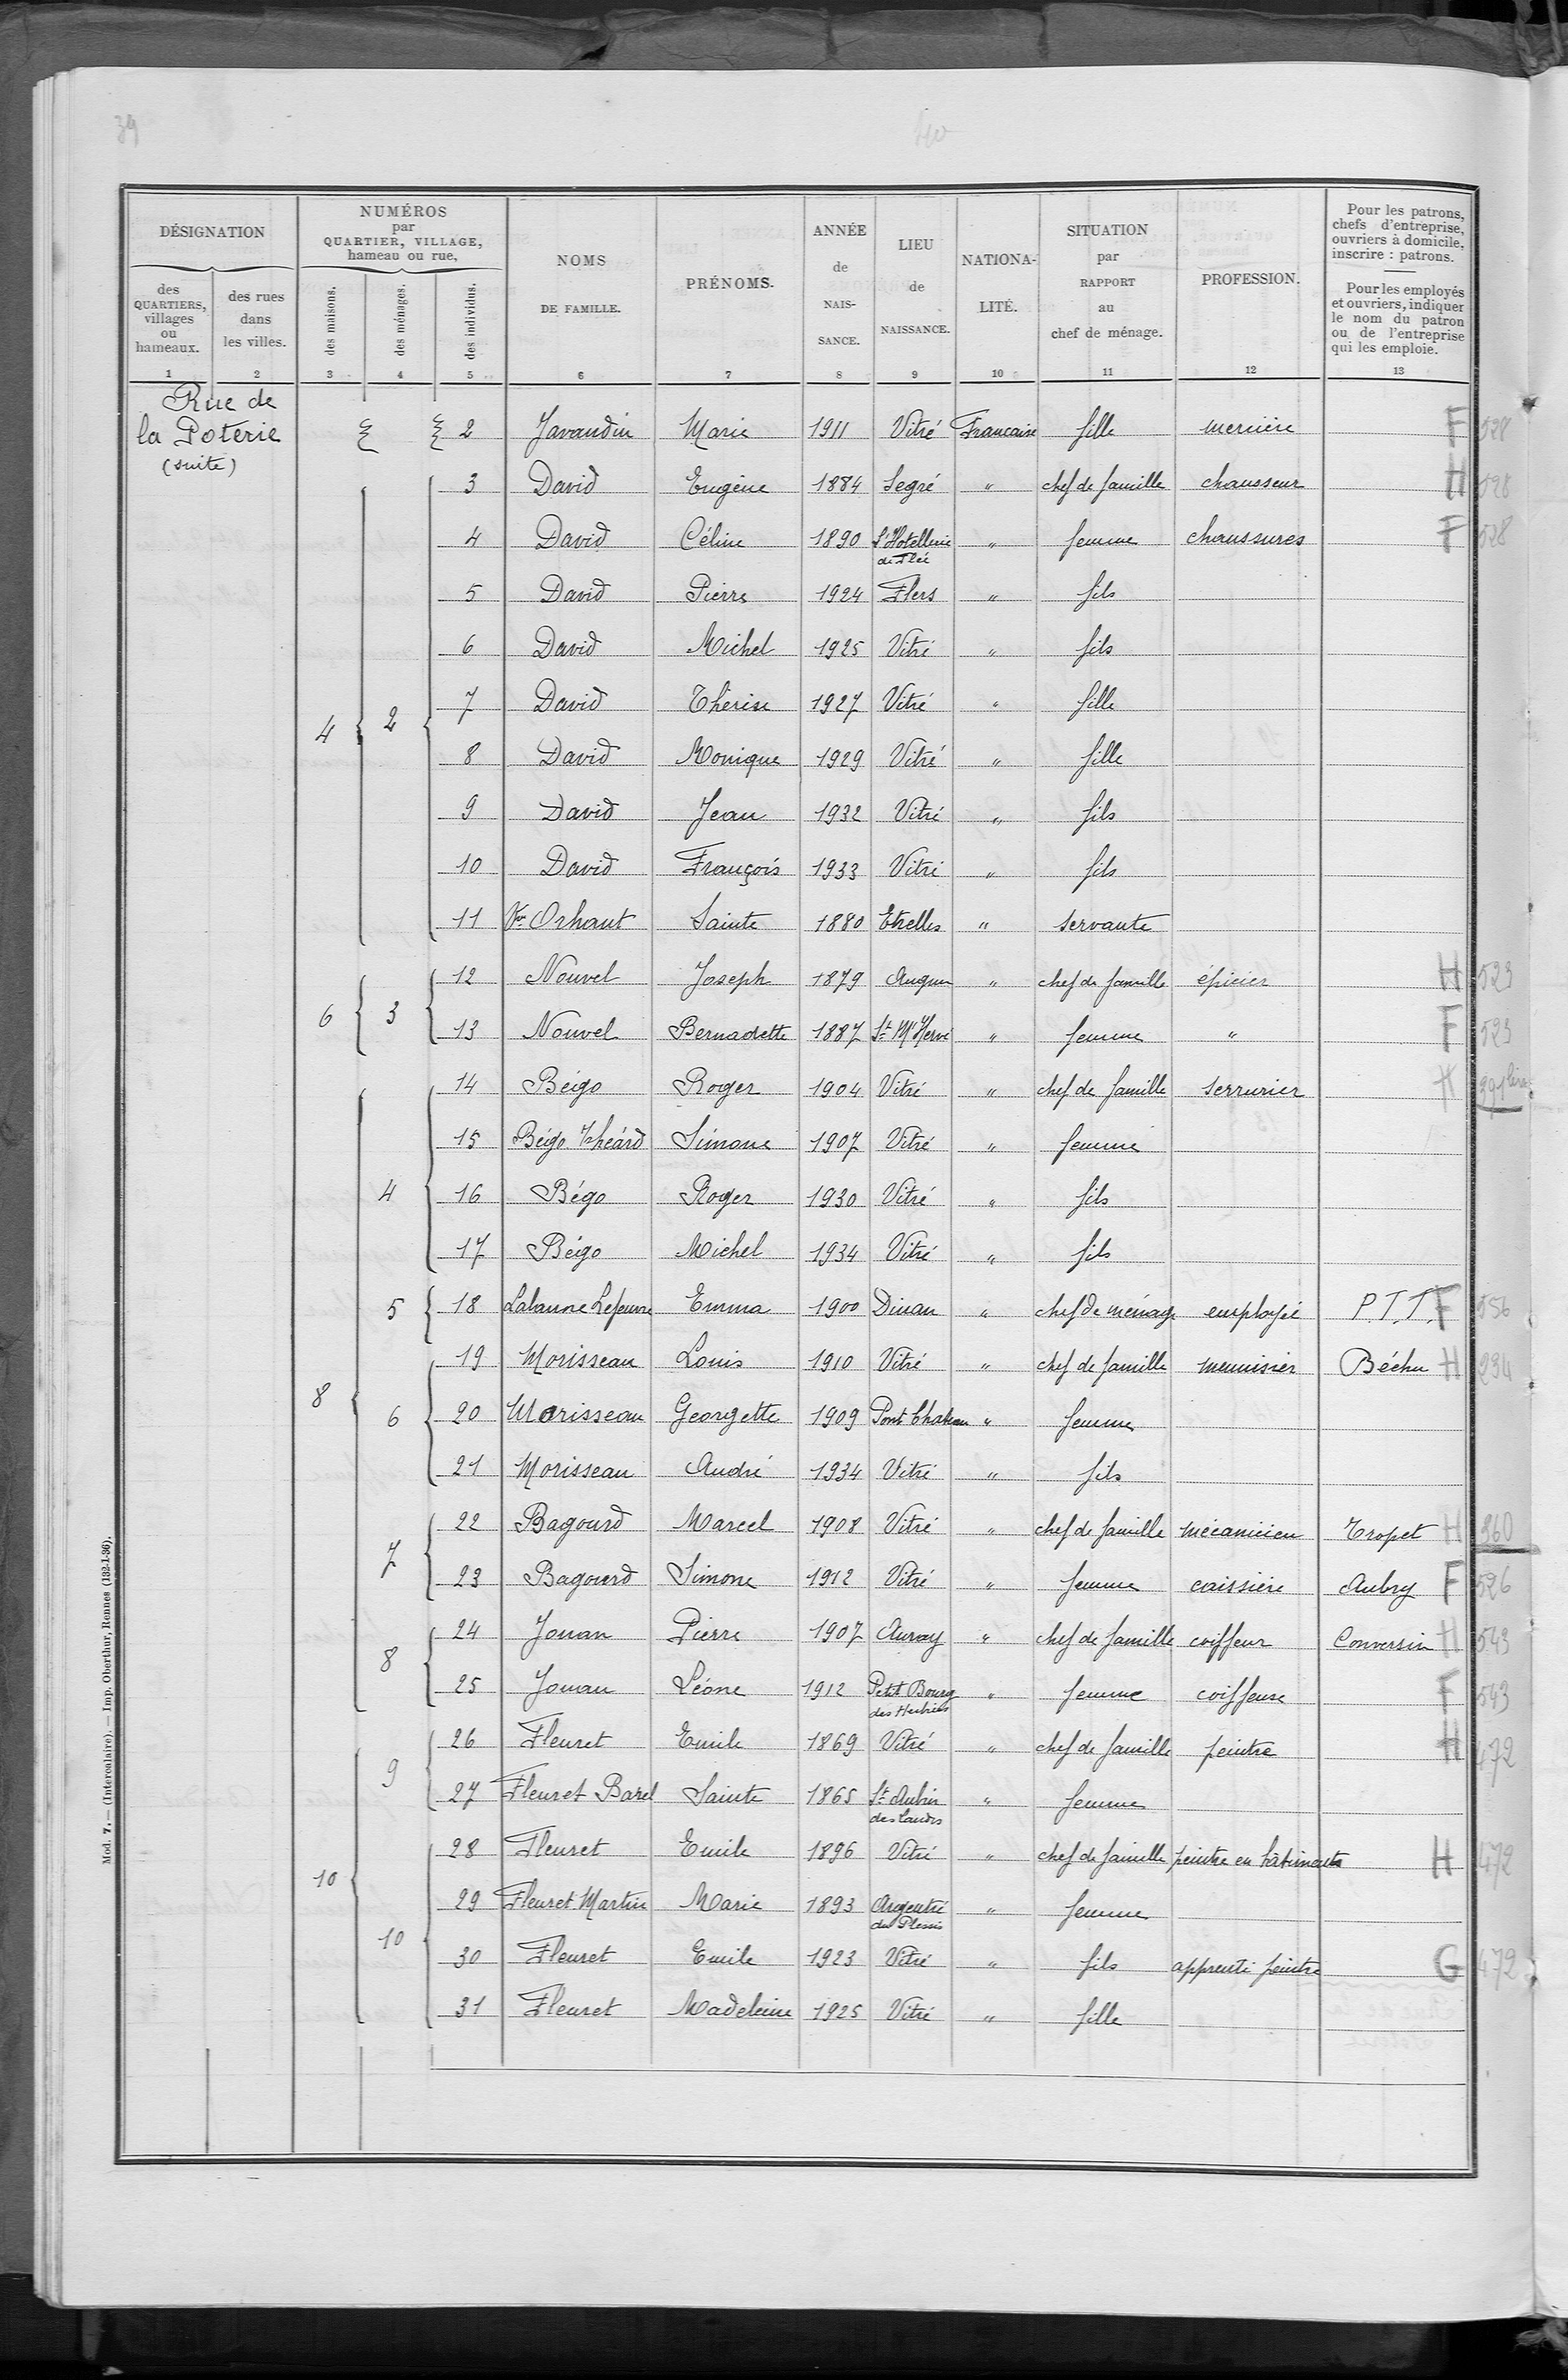 39
DÉSIGNATION
des QUARTIERS, villages ou hameaux.
des rues dans les villes.
NUMÉROS par QUARTIER, VILLAGE, hameau ou rue,
des maisons.
des ménages.
des individus.
NOMS DE FAMILLE.
PRÉNOMS.
ANNÉE de NAIS-SANCE.
LIEU de NAISSANCE.
NATIONA-LITÉ.
SITUATION par RAPPORT au chef de ménage.
PROFESSION.
Pour les patrons, chefs d'entreprise, ouvriers à domicile, inscrire : patrons.
Pour les employés et ouvriers, indiquer le nom du patron ou de l'entreprise qui les emploie.
1 2 3 4 5 6 7 8 9 10 11 12 13
Rue de
la Poterie
(suite)
2 Javaudin Marie 1911 Vitré Francaise fille mercière F 528
4 2
3 David Eugène 1884 Segré " chef de famille chausseur H 528
4 David Céline 1890 L'Hotellerie de Flée " femme chaussures F 528
5 David Pierre 1924 Flers " fils
6 David Michel 1925 Vitré " fils
7 David Thérèse 1927 Vitré " fille
8 David Monique 1929 Vitré " fille
9 David Jean 1932 Vitré " fils
10 David François 1933 Vitré " fils
11 Vve Orhant Sainte 1880 Etrelles " servante
6 3
12 Nouvel Joseph 1879 " chef de famille épicier H 523
13 Nouvel Bernadette 1887 St M' Hervé " femme " F 523
8 4
14 Bégo Roger 1904 Vitré " chef de famille serrurier H
15 Bégo Théard Simone 1907 Vitré " femme
16 Bégo Roger 1930 Vitré " fils
17 Bégo Michel 1934 Vitré " fils
5 18 Lalanne Lefeuvre Emma 1900 Dinan " chef de ménage employée P.T.T. F 556
6
19 Morisseau Louis 1910 Vitré " chef de famille menuisier Béchu H 234
20 Morisseau Georgette 1909 Pont Chateau " femme
21 Morisseau André 1934 Vitré " fils
7
22 Bagourd Marcel 1908 Vitré " chef de famille mécanicien Tropet H 360
23 Bagourd Simone 1912 Vitré " femme caissière Aubry F 526
8
24 Jouan Pierre 1907 Auray " chef de famille coiffeur Conversin H 543
25 Jouan Léone 1912 Petit Bourg des Herbiers " femme coiffeuse F 543
10 9
26 Fleuret Emile 1869 Vitré " chef de famille peintre H 472
27 Fleuret Barel Sainte 1865 St Aubin des Landes " femme
10
28 Fleuret Emile 1896 Vitré " chef de famille peintre en bâtiments H 472
29 Fleuret Martin Marie 1893 Argentré du Plessis " femme
30 Fleuret Emile 1923 Vitré " fils apprenti peintre G 472
31 Fleuret Madeleine 1925 Vitré " fille
Mod. 7. — (Intercalaire). — Imp. Oberthur, Rennes (132-1-36).